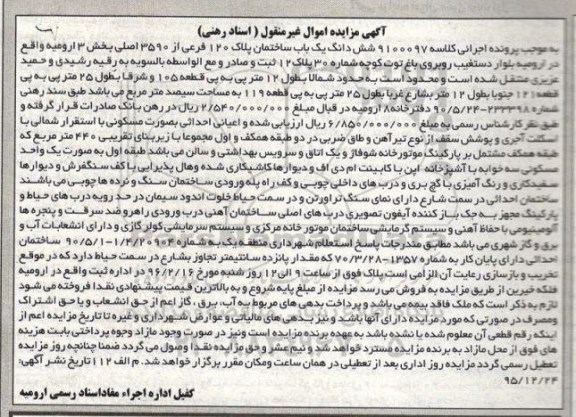 آگهی مزایده اموال غیرمنقول ( اسناد رهنی)
به موجب پرونده اجرائی کلاسه ۹۱۰۰۰۹۷ شش دانگ یک باب ساختمان پلاک ۱۲۰ فرعی از ۳۵۹۰ اصلی بخش ۳ ارومیه واقع
در ارومیه بلوار دستغیب روبروی باغ توت کوچه شماره ۳۰ پلاک ۱۲ ثبت و صادر و مع الواسطه بالسویه به رقیه رشیدی و حمید
عزیزی منتقل شده است و محدود است به حدود شمالا بطول ۱۲ متر پی به پی قطعه ۱۰۵ و شرقا بطول ۲۵ متر پی به پی
قطعه ۱۲۱ جنوبا بطول ۱۲ متر بشارع غربا بطول ۲۵ متر پی به پی قطعه ۱۱۹ به مساحت سیصد متر مربع می باشد طبق سند رهنی
شماره ۲۳۳۳۹۸-۹۰/۵/۲۴ دفترخانه ۸ ارومیه در قبال مبلغ ۲/۵۴۰/۰۰۰/۰۰۰ ریال در رهن بانک صادرات قرار گرفته و
طبق نظر کارشناس رسمی به مبلغ ۶/۸۵۰/۰۰۰/۰۰۰ ریال ارزیابی شده و اعیانی احداثی بصورت مسکونی با استقرار شمالی با
اسکلت آجری و پوشش سقف از نوع تیر آهن و طاق ضربی در دو طبقه همکف و اول مجموعا با زیربنای تقریبی ۴۴۰ متر مربع که
طبقه همکف مشتمل بر پارکینگ موتورخانه شوفاژ و یک اتاق و سرویس بهداشتی و سالن می باشد طبقه اول به صورت یک واحد
مسکونی سه خوابه با آشپزخانه اپن با کابینت ام دی اف و دیوارها کاشیکاری شده وهال پذیرایی با کف سنگفرش و دیوارها
سفیدکاری و رنگ آمیزی با گچ بری و درب های داخلی چوبی و کف راه پله ورودی ساختمان سنگ و نرده ها چوبی می باشند
ساختمان احداثی در سمت شارع دارای نمای سنگ تراورتن و در سمت حیاط خلوت اندود سیمان در حد رویه درب های حیاط و
پارکینگ مجهز به جک باز کننده آیفون تصویری درب های اصلی ساختمان آهنی درب ورودی راهرو ضد سرقت و پنجره ها
آلومینیومی با حفاظ آهنی و سیستم گرمایشی ساختمان موتور خانه مرکزی و سیستم سرمایشی کولر گازی و دارای انشعابات آب و
برق و گاز شهری می باشد مطابق مندرجات پاسخ استعلام شهرداری منطقه یک به شماره ۱/۴/۲۰۹۰۴-۹۰/۵/۱ ساختمان
احداثی دارای پایان کار به شماره ۱۳۵۷-۷۰/۳/۲۸ که مقدار پانزده سانتیمتر تجاوز بشارع در سمت حیاط دارد که در موقع
تخریب و بازسازی رعایت آن الزامی است پلاک فوق از ساعت ۹ الی ۱۲ روز شنبه مورخ ۹۶/۲/۱۶ در اداره ثبت واقع در ارومیه
فلکه خیرین از طریق مزایده به فروش می رسد مزایده از مبلغ پایه شروع و به بالاترین قیمت پیشنهادی نقدا فروخته می شود
لازم به ذکر است که ملک فاقد بیمه می باشد و پرداخت بدهی های مربوط به آب ، برق ، گاز اعم از حق انشعاب و یا حق اشتراک
ومصرف در صورتی که مورد مزایده دارای آنها باشد و نیز بدهی های مالیاتی و عوارض شهرداری و غیره تا تاریخ مزایده اعم از
اینکه رقم قطعی آن معلوم شده یا نشده باشد به عهده برنده مزایده است ونیز در صورت وجود مازاد وجوه پرداختی بابت هزینه
های فوق از محل مازاد به برنده مزایده مسترد خواهد شد و نیم عشر و حق مزایده نقدا وصول می گردد ضمنا چنانچه روز مزایده
تعطیل رسمی گردد مزایده روز اداری بعد از تعطیلی در همان ساعت ومکان مقرر برگزار خواهد شد. م الف ۱۱۲ تاریخ نشر آگهی:
۹۵/۱۲/۲۴
کفیل اداره اجراء مفاد اسناد رسمی ارومیه